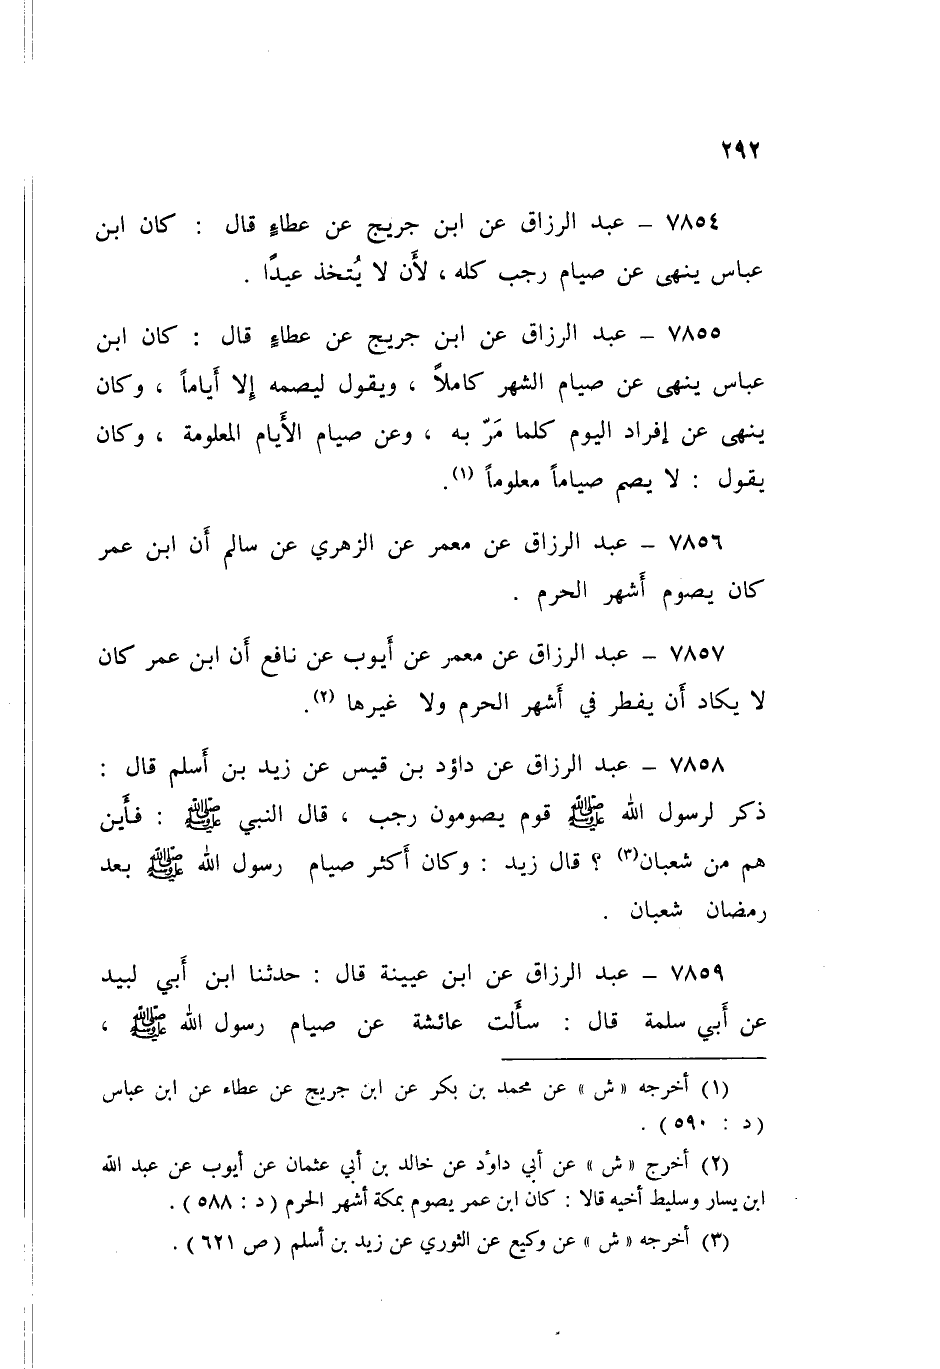 ٢٩٢
٧٨٥٤ – عبد الرزاق عن ابن جريج عن عطاءٍ قال : كان ابن
عباس ينهى عن صيام رجب كله ، لأَن لا يُتخذ عيدًا .
٧٨٥٥ – عبد الرزاق عن ابن جريج عن عطاءٍ قال : كان ابن
عباس ينهى عن صيام الشهر كاملاً ، ويقول ليصمه إلا أَياماً ، وكان
ينهى عن إفراد اليوم كلما مَرّ به ، وعن صيام الأَيام المعلومة ، وكان
يقول : لا يصم صياماً معلوماً (١).
٧٨٥٦ – عبد الرزاق عن معمر عن الزهري عن سالم أَن ابن عمر
كان يصوم أَشهر الحرم .
٧٨٥٧ – عبد الرزاق عن معمر عن أَيوب عن نافع أَن ابن عمر كان
لا يكاد أَن يفطر في أَشهر الحرم ولا غيرها (٢).
٧٨٥٨ – عبد الرزاق عن داؤد بن قيس عن زيد بن أَسلم قال :
ذكر لرسول الله ﷺ قوم يصومون رجب ، قال النبي ﷺ : فأَين
هم من شعبان(٣) ؟ قال زيد : وكان أَكثر صيام رسول الله ﷺ بعد
رمضان شعبان .
٧٨٥٩ – عبد الرزاق عن ابن عيينة قال : حدثنا ابن أَبي لبيد
عن أَبي سلمة قال : سأَلت عائشة عن صيام رسول الله ﷺ ،
(١) أخرجه « ش » عن محمد بن بكر عن ابن جريج عن عطاء عن ابن عباس
(د : ٥٩٠) .
(٢) أخرج « ش » عن أبي داوٗد عن خالد بن أبي عثمان عن أيوب عن عبد الله
ابن يسار وسليط أخيه قالا : كان ابن عمر يصوم بمكة أشهر الحرم ( د : ٥٨٨ ) .
(٣) أخرجه « ش » عن وكيع عن الثوري عن زيد بن أسلم ( ص ٦٢١ ) .